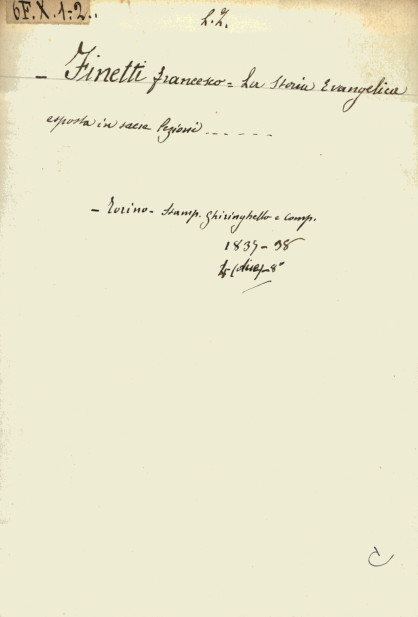 6F.X.1-2.
L.L.
- Finetti Francesco = La Storia Evangelica
esposta in sacre Lezioni ------
- Torino - Stamp. Ghiringhello e Comp.
1837-38
8°